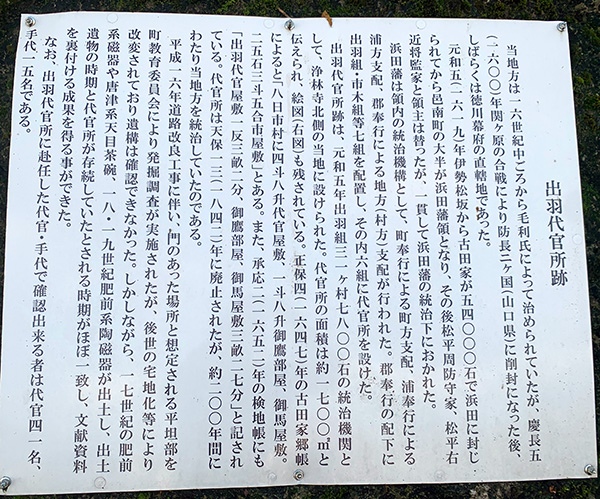 出羽代官所跡
当地方は一六世紀中ころから毛利氏によって治められていたが、慶長五
(一六〇〇)年関ヶ原の合戦により防長二ヶ国(山口県)に削封になった後、
しばらくは徳川幕府の直轄地であった。
元和五(一六一九)年伊勢松坂から古田家が五四〇〇〇石で浜田に封じ
られてから邑南町の大半が浜田藩領となり、その後松平周防守家、松平右
近将監家と領主は替ったが、一貫して浜田藩の統治下におかれた。
浜田藩は領内の統治機構として、町奉行による町方支配、浦奉行による
浦方支配、郡奉行による地方(村方)支配が行われた。郡奉行の配下に
出羽組・市木組等七組を配置し、その内六組に代官所を設けた。
出羽代官所跡は、元和五年出羽組三一ヶ村七八〇〇石の統治機関と
して、浄林寺北側の当地に設けられた。代官所の面積は約一七〇〇㎡と
伝えられ、絵図(右図)も残されている。正保四(一六四七)年の古田家郷帳
によると「八日市村に四斗八升代官屋敷、一斗八升御鷹部屋、御馬屋敷。
二五石三斗五合市屋敷」とある。また、承応二(一六五二)年の検地帳にも
「出羽代官屋敷一反三畝二分、御鷹部屋、御馬屋敷三畝二七分」と記され
ている。代官所は天保一三(一八四二)年に廃止されたが、約二〇〇年間に
わたり当地方を統治していたのである。
平成一六年道路改良工事に伴い、門のあった場所と想定される平坦部を
町教育委員会により発掘調査が実施されたが、後世の宅地化等により
改変されており遺構は確認できなかった。しかしながら、一七世紀の肥前
系磁器や唐津系天目茶碗、一八・一九世紀肥前系陶磁器が出土し、出土
遺物の時期と代官所が存続していたとされる時期がほぼ一致し、文献資料
を裏付ける成果を得る事ができた。
なお、出羽代官所に赴任した代官・手代で確認出来る者は代官四一名、
手代一五名である。